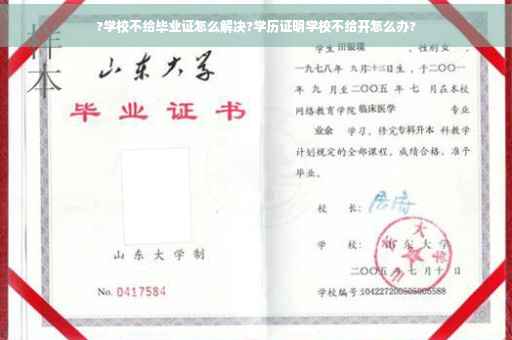 ?学校不给毕业证怎么解决?学历证明学校不给开怎么办?
样本
山东大学
毕业证书
山东大学制
No. 0417584
学生 田银瑞 ，性别 女 ，
一九七八年 九月十三日生，于二〇〇一
年 九 月至二〇〇五 年 七 月在本校
网络教育学院 临床医学 专业
业余 学习，修完专科升本 科教学
计划规定的全部课程，成绩合格，准予
毕业。
校 长：
学 校：山东大学
二〇〇五 年 七 月 十 日
学校编号:104227200505005588